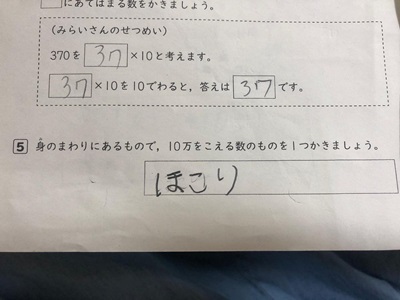 □にあてはまる数をかきましょう。
(みらいさんのせつめい)
370を 37 ×10と考えます。
37 ×10を10でわると,答えは 37 です。
5 身のまわりにあるもので,10万をこえる数のものを1つかきましょう。
ほこり